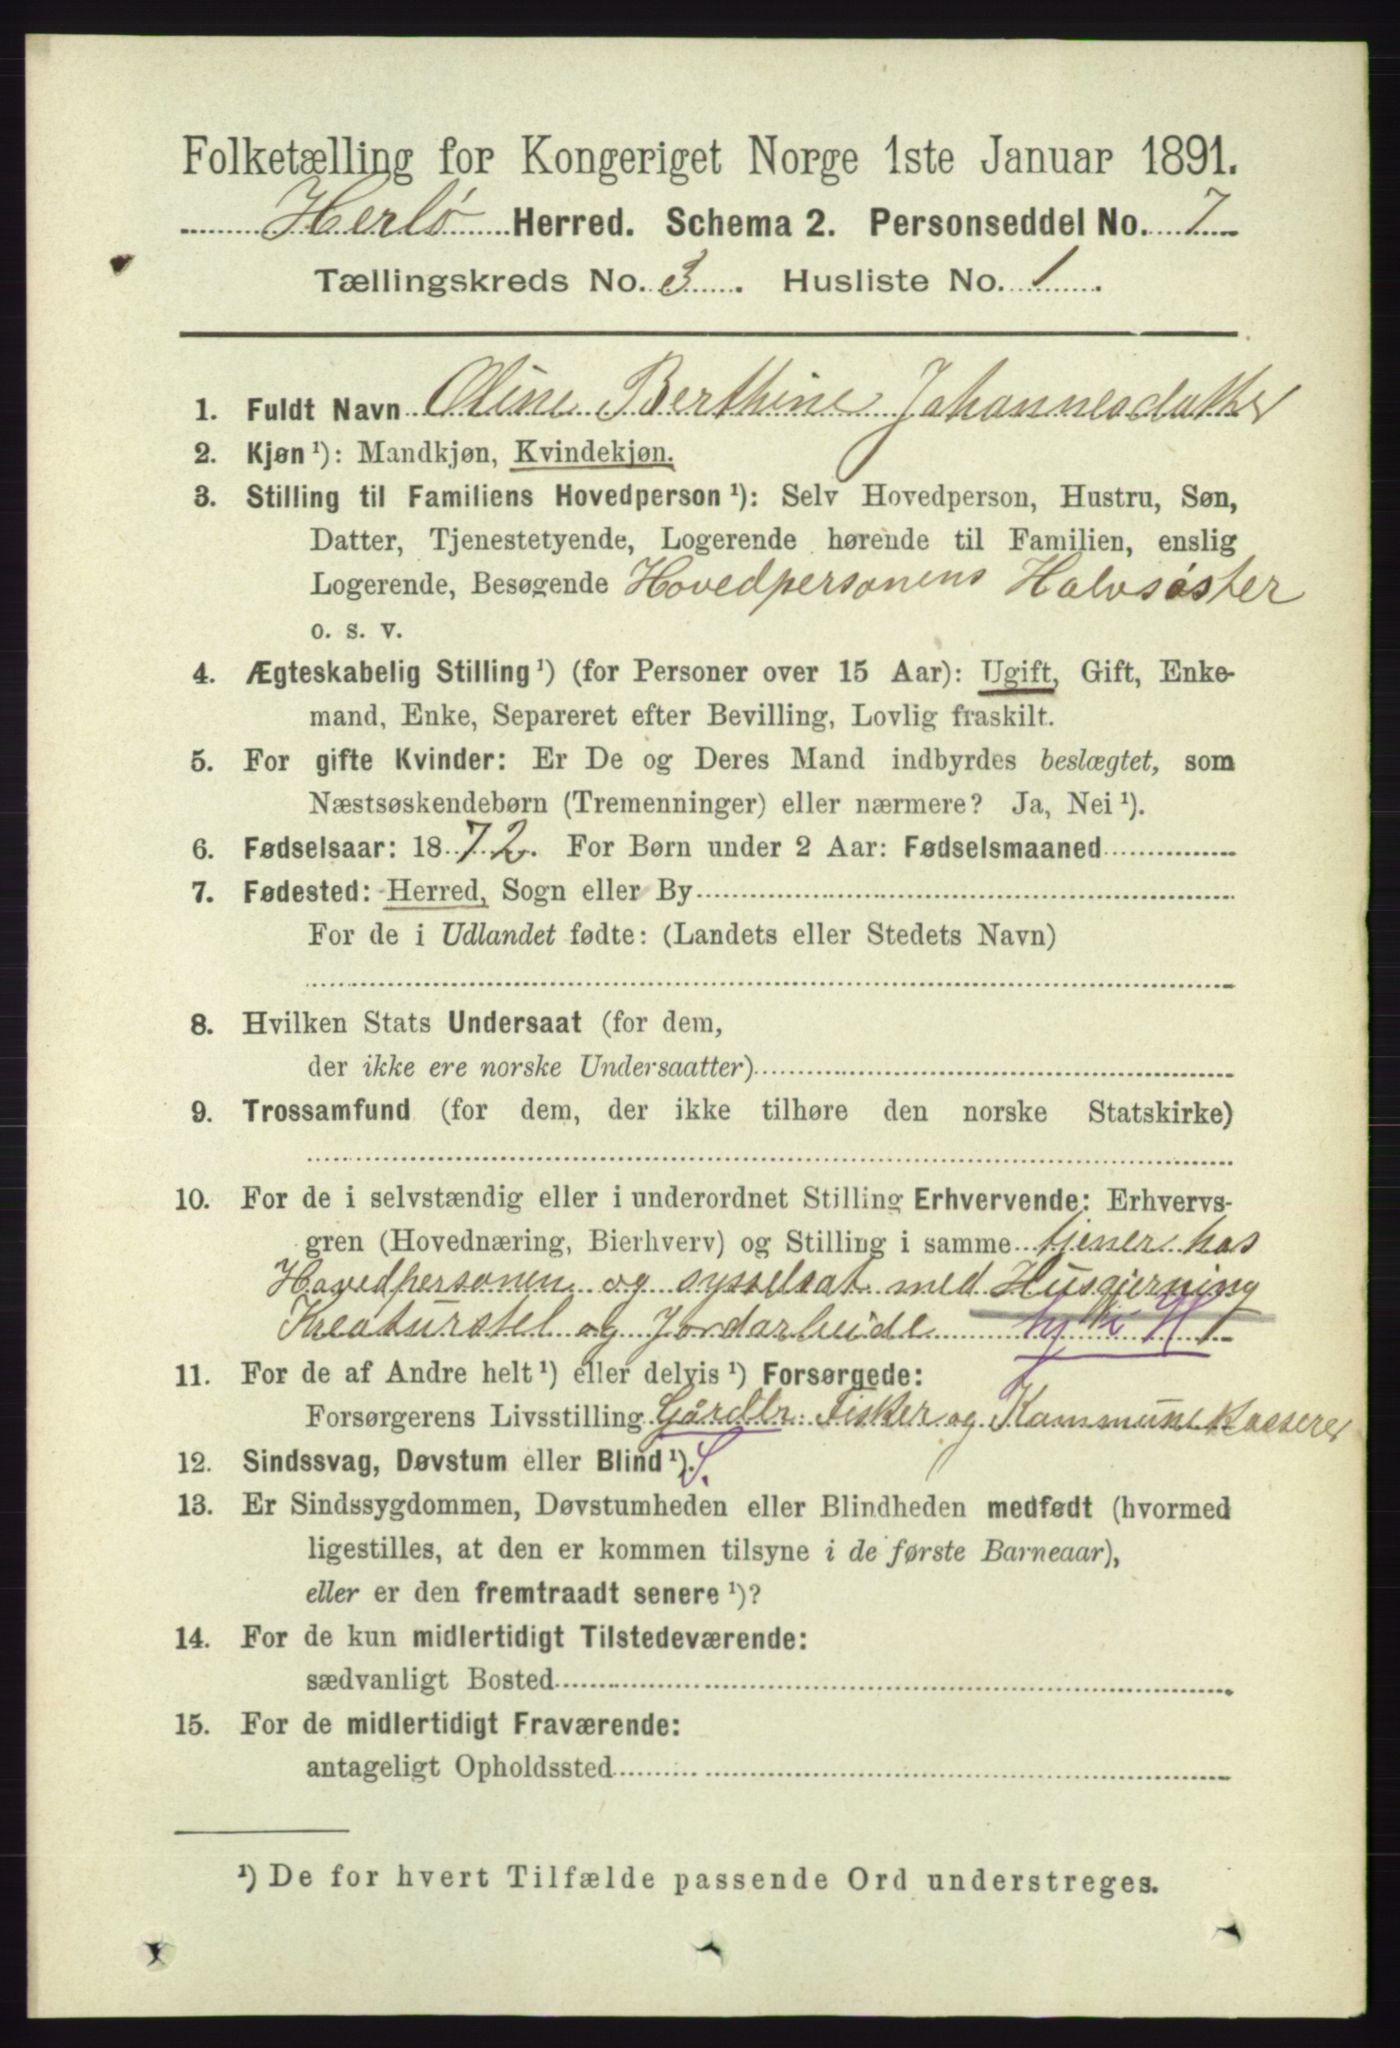 Folketælling for Kongeriget Norge 1ste Januar 1891.
Herlö Herred. Schema 2. Personseddel No. 7
Tællingskreds No. 3. Husliste No. 1.
1. Fuldt Navn Oline Berthine Johannesdatter
2. Kjøn ¹): Mandkjøn, Kvindekjøn.
3. Stilling til Familiens Hovedperson ¹): Selv Hovedperson, Hustru, Søn,
Datter, Tjenestetyende, Logerende hørende til Familien, enslig
Logerende, Besøgende Hovedpersonens Halvsöster
o. s. v.
4. Ægteskabelig Stilling ¹) (for Personer over 15 Aar): Ugift, Gift, Enke-
mand, Enke, Separeret efter Bevilling, Lovlig fraskilt.
5. For gifte Kvinder: Er De og Deres Mand indbyrdes beslægtet, som
Næstsøskendebørn (Tremenninger) eller nærmere? Ja, Nei ¹).
6. Fødselsaar: 1872. For Børn under 2 Aar: Fødselsmaaned
7. Fødested: Herred, Sogn eller By
For de i Udlandet fødte: (Landets eller Stedets Navn)
8. Hvilken Stats Undersaat (for dem,
der ikke ere norske Undersaatter)
9. Trossamfund (for dem, der ikke tilhøre den norske Statskirke)
10. For de i selvstændig eller i underordnet Stilling Erhvervende: Erhvervs-
gren (Hovednæring, Bierhverv) og Stilling i samme tjener hos
Hovedpersonen og sysselsat med Husgjerning
Kreaturstel og Jordarbeide
11. For de af Andre helt ¹) eller delvis ¹) Forsørgede:
Forsørgerens Livsstilling Gårdbr. Fisker og Kommunekasserer
12. Sindssvag, Døvstum eller Blind ¹). S.
13. Er Sindssygdommen, Døvstumheden eller Blindheden medfødt (hvormed
ligestilles, at den er kommen tilsyne i de første Barneaar),
eller er den fremtraadt senere ¹)?
14. For de kun midlertidigt Tilstedeværende:
sædvanligt Bosted
15. For de midlertidigt Fraværende:
antageligt Opholdssted
¹) De for hvert Tilfælde passende Ord understreges.